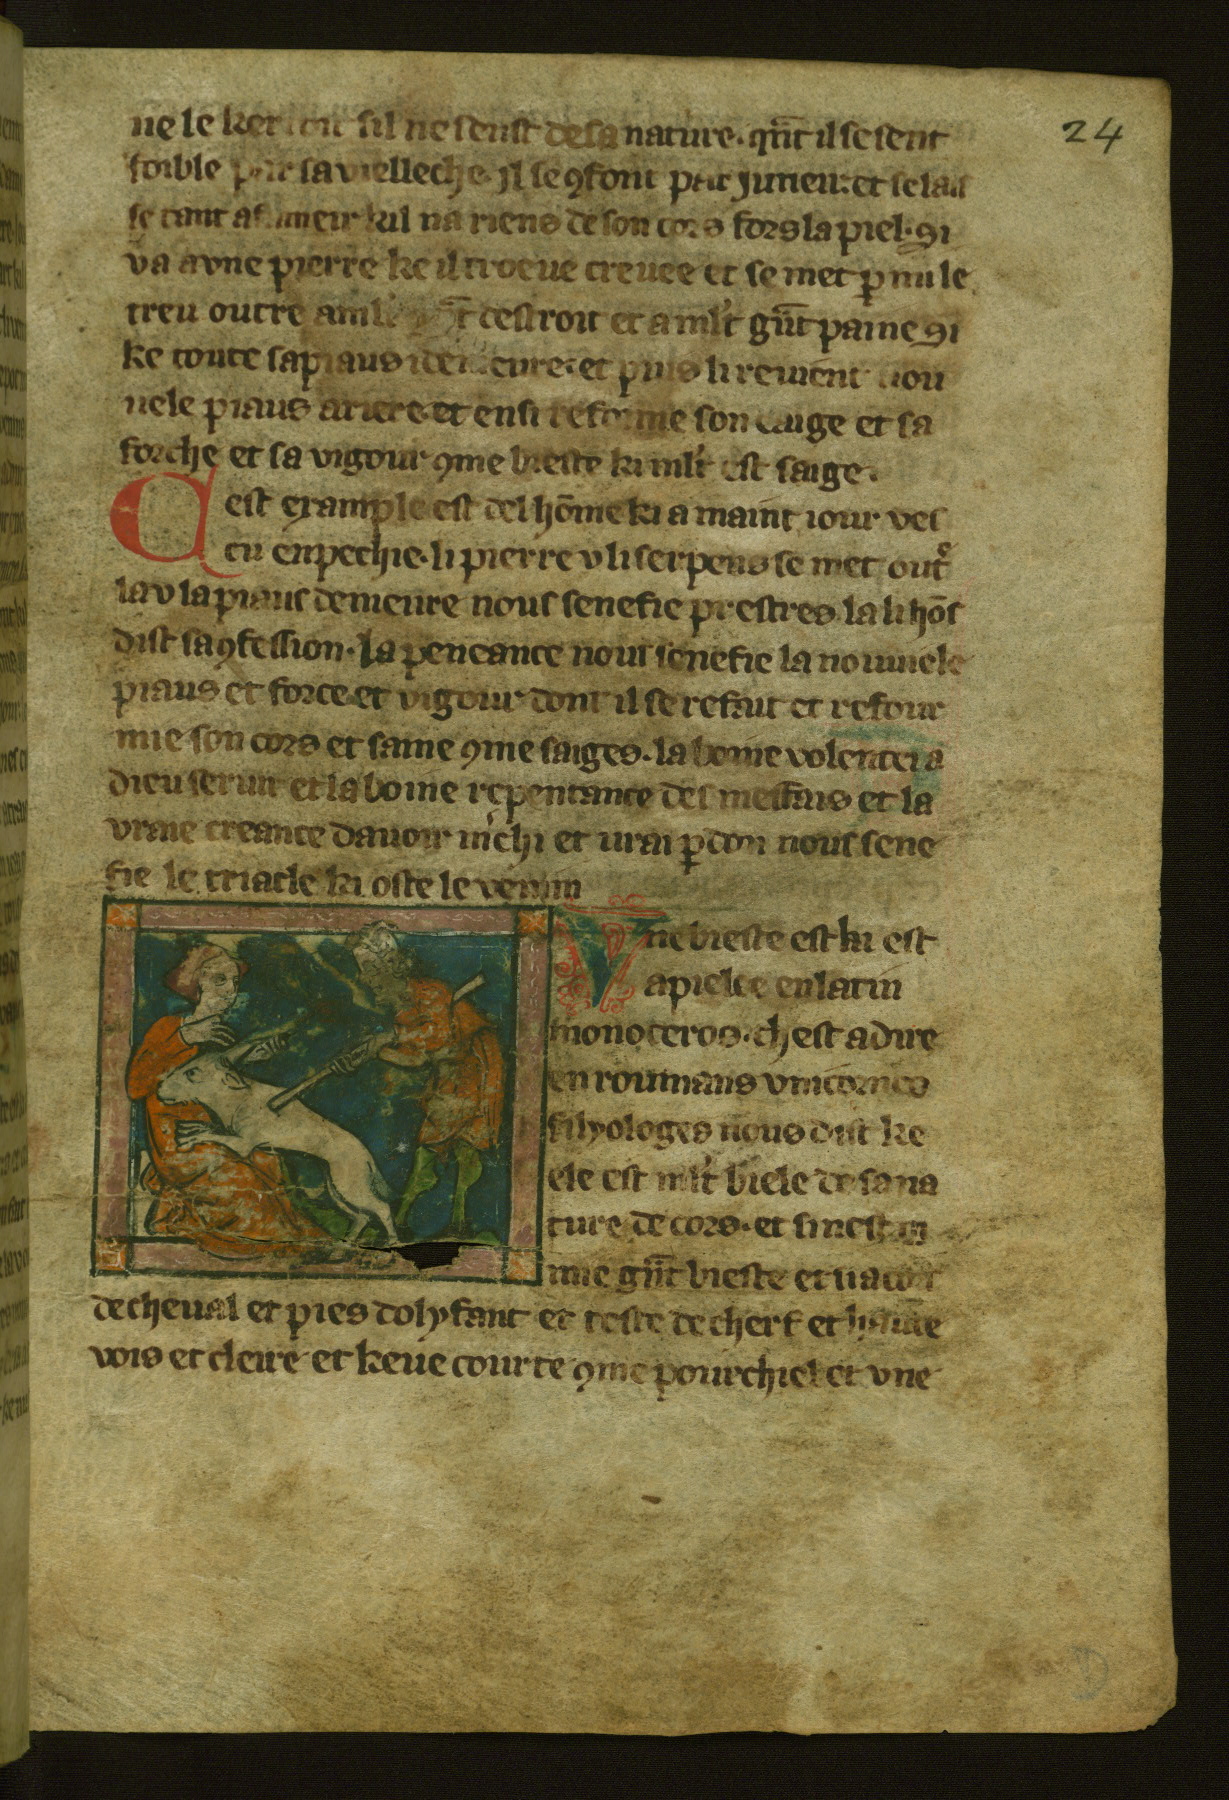 24
ne le sil ne seust de sa nature. qñt il se sent
foible par sa vielleche. Il se ꝯfont par Juneir. et se lais
se tant kil na riens de son cors fors la piel. ꝯi
va a vne pierre ke il troeue creuee et se met ꝑmi le
treu outre a ml't destroit et a ml't gñt paine ꝯi
ke toute sa piaus et puis li reuient nou
uele piaus ariere. et ensi reforme son eaige et sa
forche et sa vigour ꝯme bieste ki ml't est saige.
Cest example est del hõme ki a maint iour ves
cu en pechie. li pierre v li serpens se met outᷓ
la v la piaus demeure nous senefie prestres. la li hõs
dist sa ꝯfession. La peneance nous senefie la nouuiele
piaus et force. et vigour dont il se refait et refour
mie son cors et saine ꝯme saiges. la boine volentei a
dieu seruir et la boine repentance des meffais et la
vraie creance dauoir m'chi et urai ꝑdon nous sene
fie le triacle ki oste le venim
Vne bieste est ki est
apielee en latin
monoceros. ch est a dire
en roumans vnicornes
filyologes nous dist ke
ele est ml't biele de sa na
ture de cors. et si nest
mie gñt bieste et a cors
de cheual et pies dolyfant et teste de cherf et
vois et cleire et keue courte ꝯme pourchiel et vne